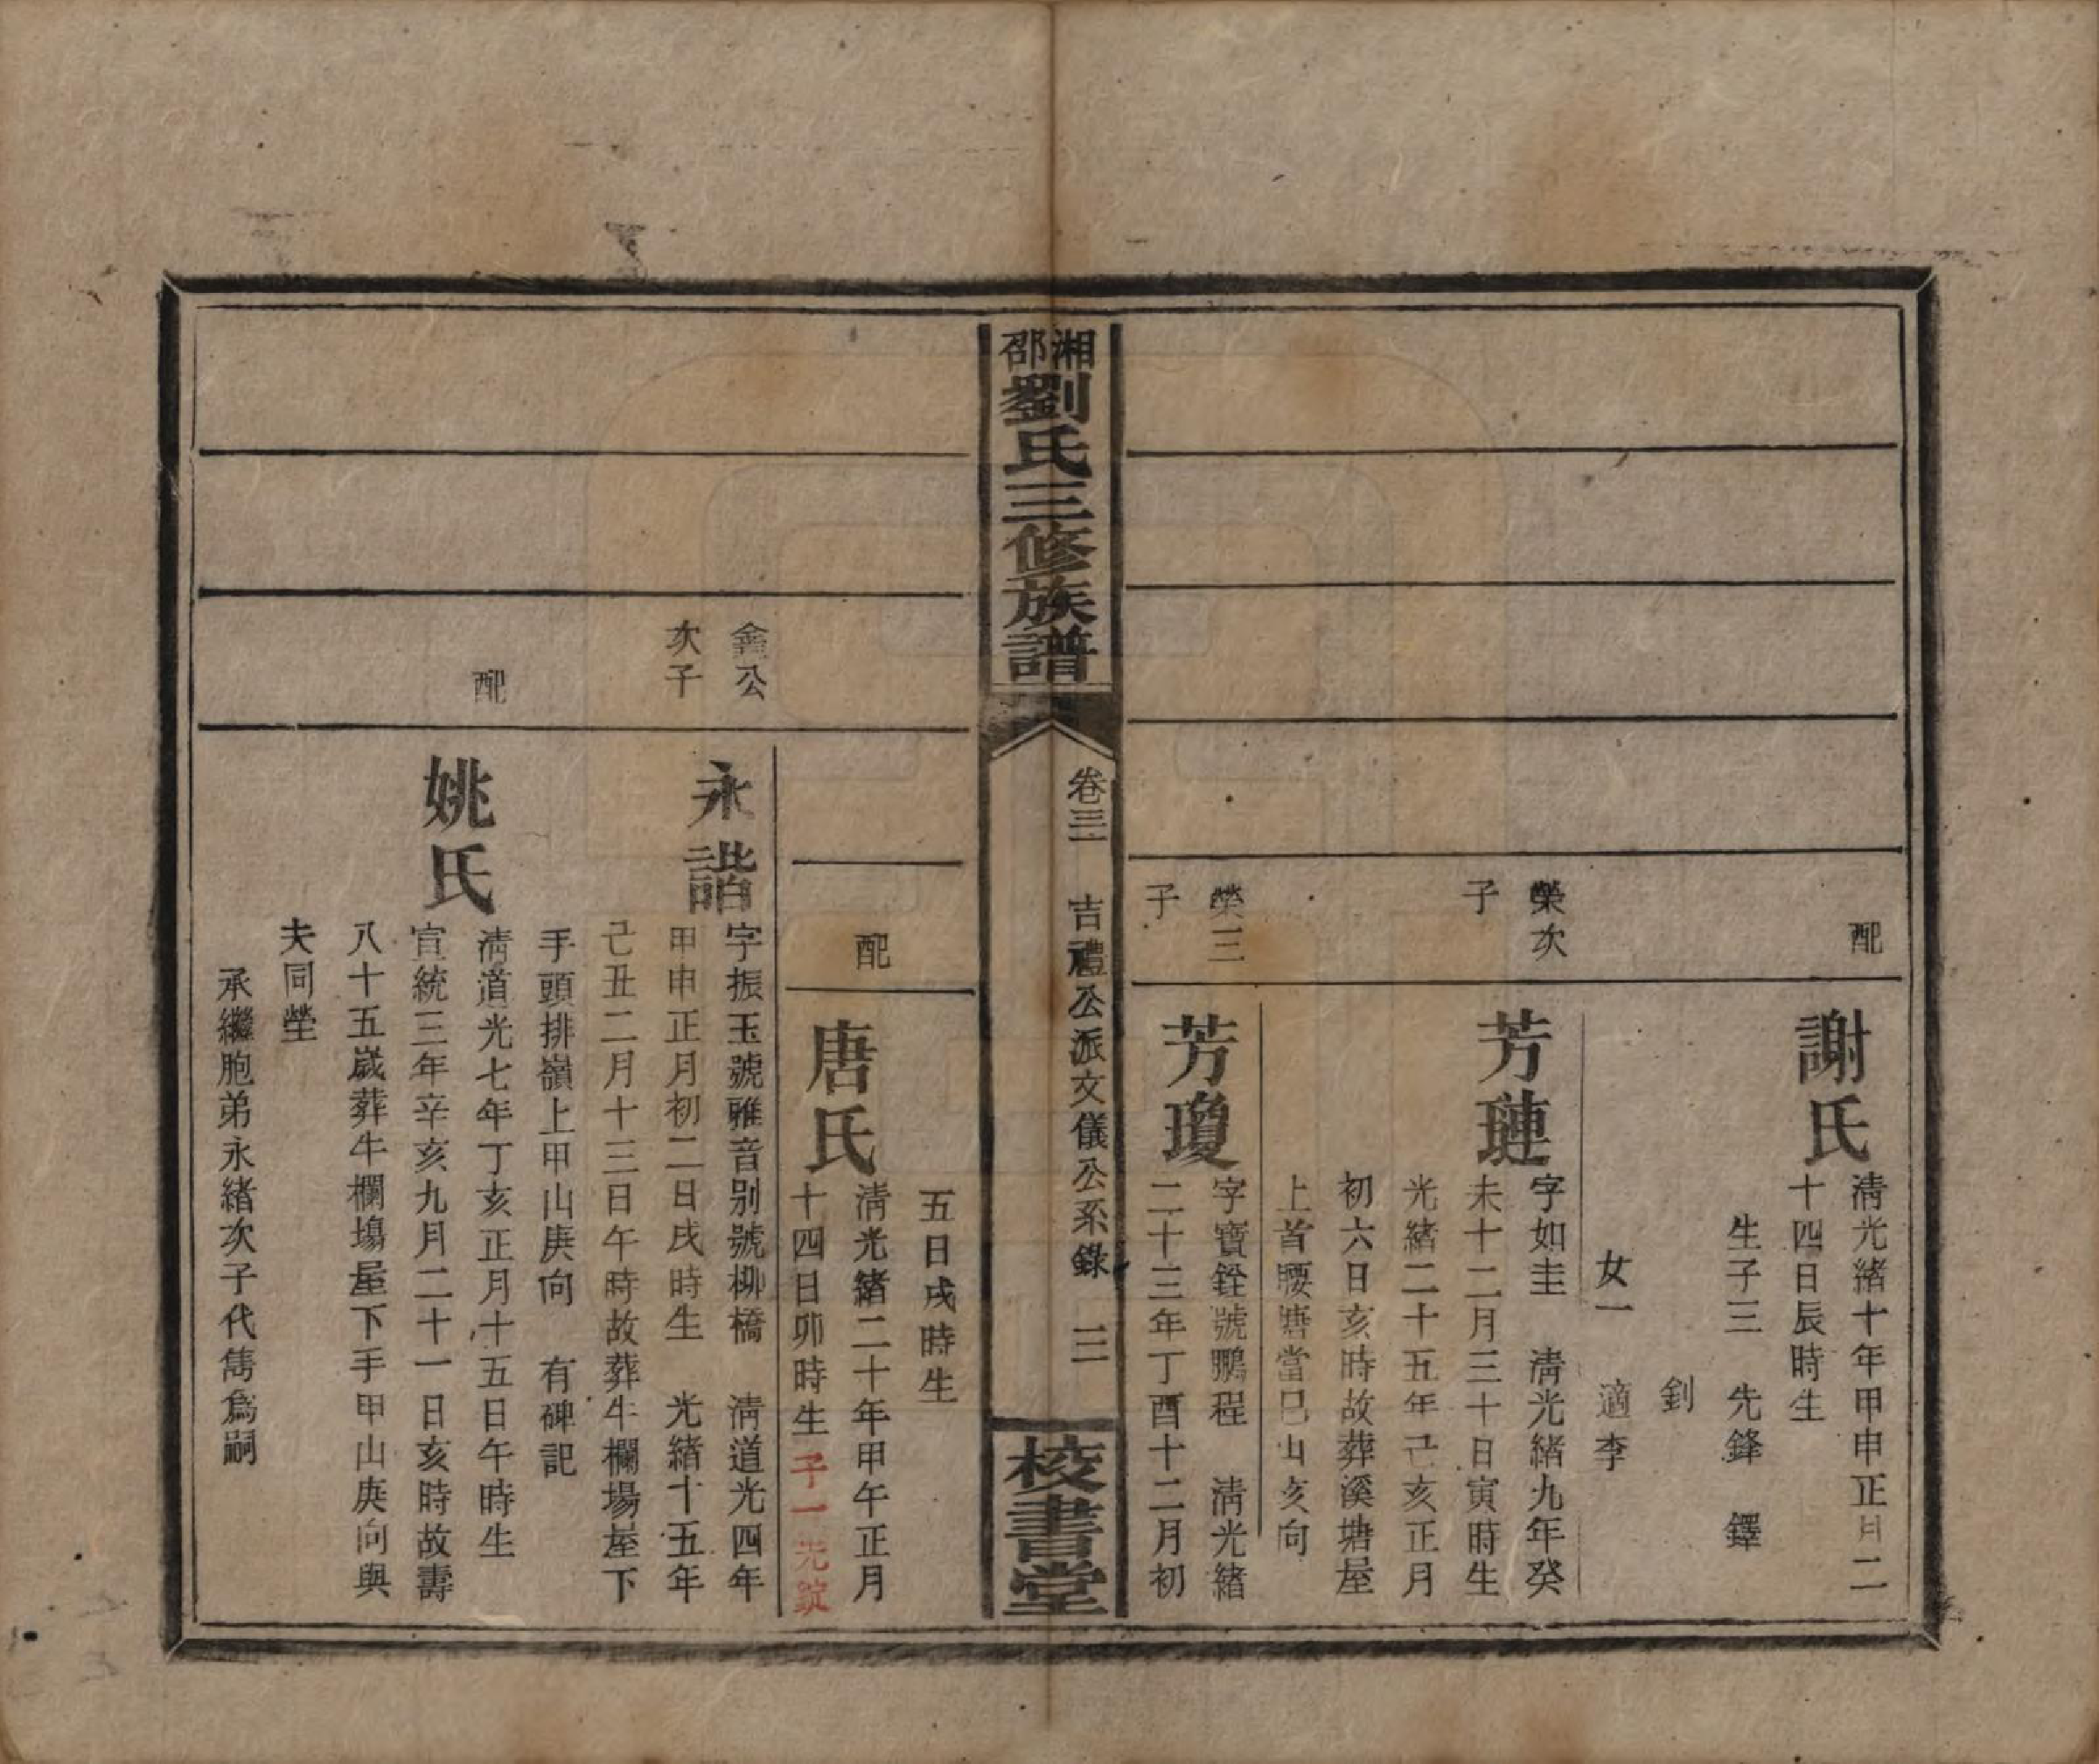 配
謝氏
清光緒十年甲申正月二
十四日辰時生
生子三　先鋒　鐸
釗
女一　適李
榮次
子
芳璉
字如圭　清光緒九年癸
未十二月三十日寅時生
光緒二十五年己亥正月
初六日亥時故葬溪塘屋
上首腰塘當巳山亥向
榮三
子
芳瓊
字寶銓號鵬程　清光緒
二十三年丁酉十二月初
湘邵劉氏三修族譜
卷三　吉禮公派文儀公系錄　三
校書堂
五日戌時生
配
唐氏
清光緒二十年甲午正月
十四日卯時生子一先錠
鑫公
次子
永諧
字振玉號雅音別號柳橋　清道光四年
甲申正月初二日戌時生　光緒十五年
己丑二月十三日午時故葬牛欄場屋下
手頭排嶺上甲山庚向　有碑記
配
姚氏
清道光七年丁亥正月十五日午時生
宣統三年辛亥九月二十一日亥時故壽
八十五歲葬牛欄塲屋下手甲山庚向與
夫同塋
承繼胞弟永緒次子代雋爲嗣